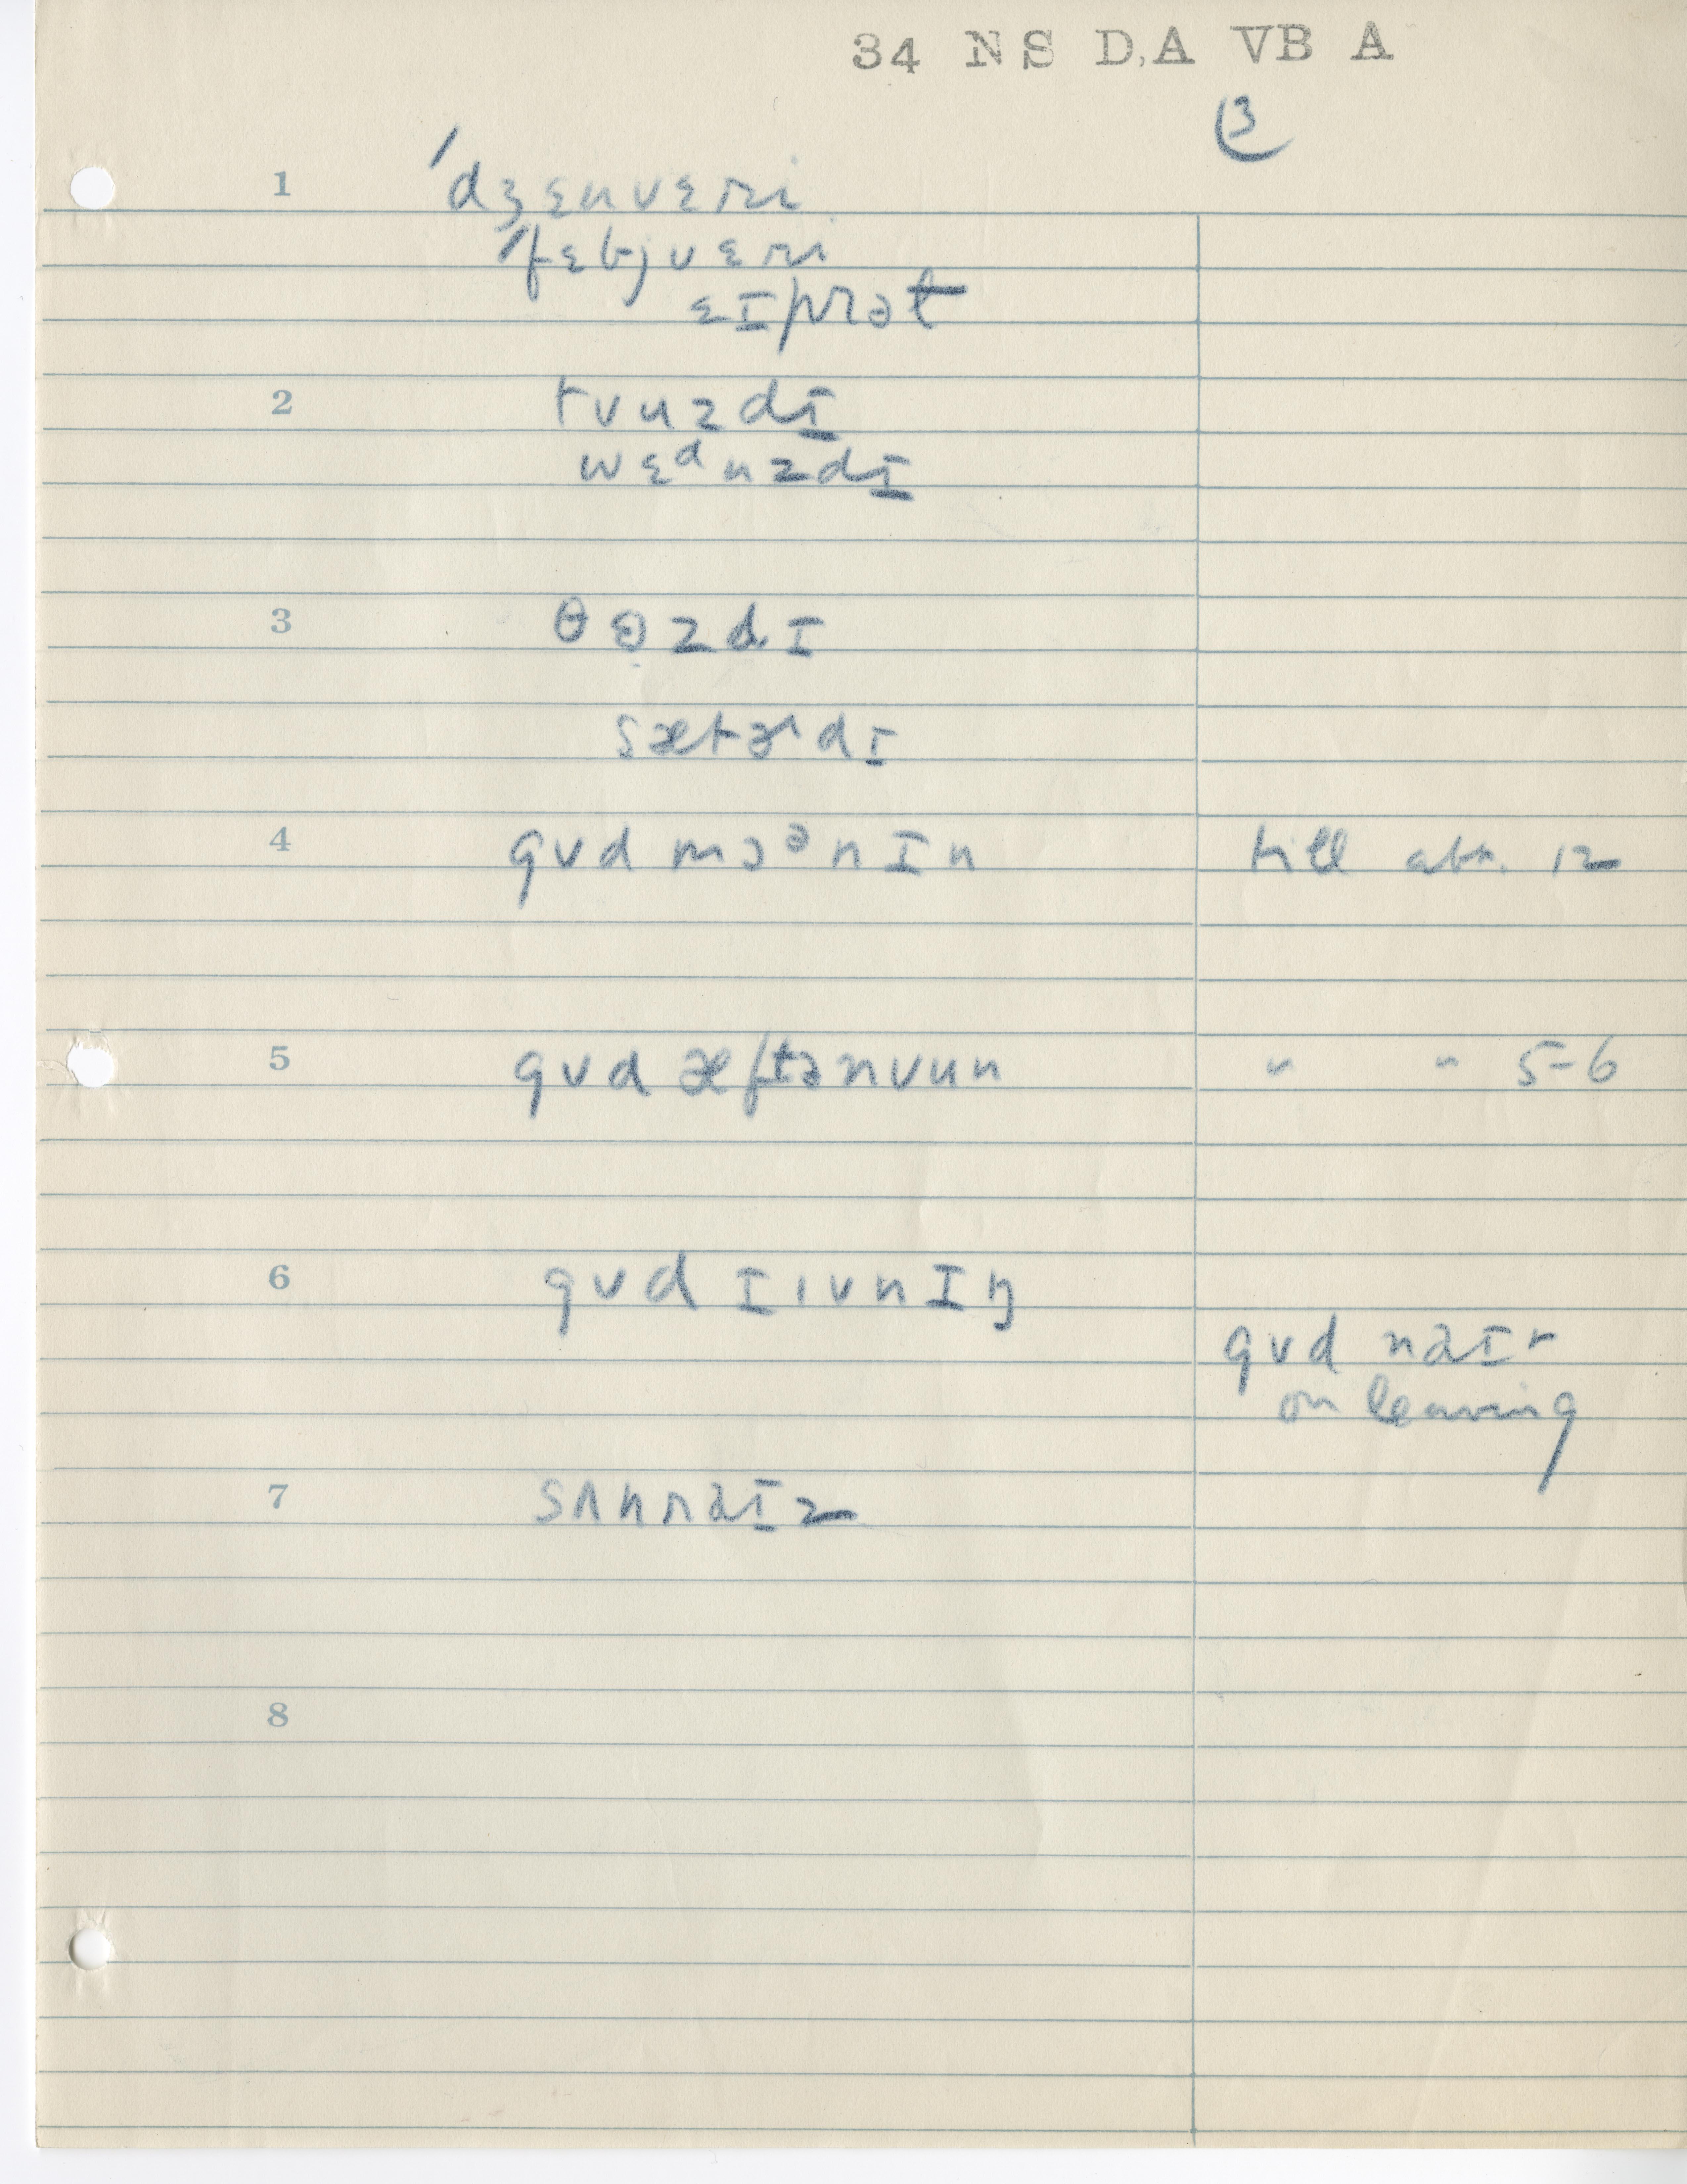 34 NS D,A VB A
B
1 ˈdʒɛnuɛri
ˈfɛbjuɛri
ɛɪprəl
2 tuuzdɪ
wɛᵈnzdɪ
3 θɵzdɪ
sætɚdɪ
4 gʊd mɔᵊnɪn till abt. 12
5 gʊd æftənuun " " 5-6
6 gʊd ɪivnɪŋ
gʊd naɪt
on leaving
7 sʌnraɪz
8